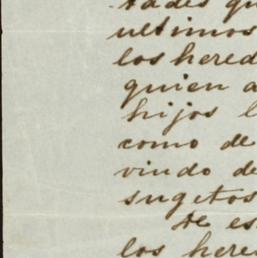 tades qu
ultimos
los hered
quien a
hijos l
como de
viudo de
sugetos
de es
los here